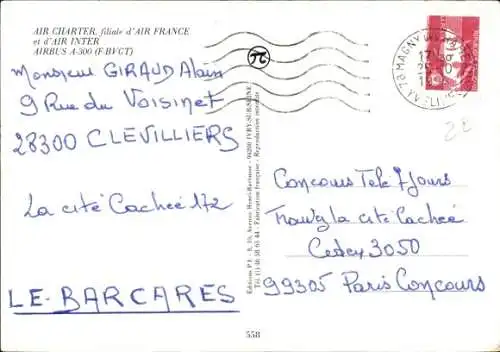 AIR CHARTER, filiale d'AIR FRANCE
et d'AIR INTER
AIRBUS A-300 (F-BVGT)
Monsieur GIRAUD Alain
9 Rue du Voisinet
28300 CLEVILLIERS
La cité Cachée 172
LE BARCARES
Editions P.I. - 8, 10, Avenue Henri-Barbusse - 94200 IVRY-SUR-SEINE
Fabrication Française - Reproduction interdite
Concours Télé 7 Jours
Trouvez la cité Cachée
Cedex 3050
99305 Paris Concours
MAGNY
22
558